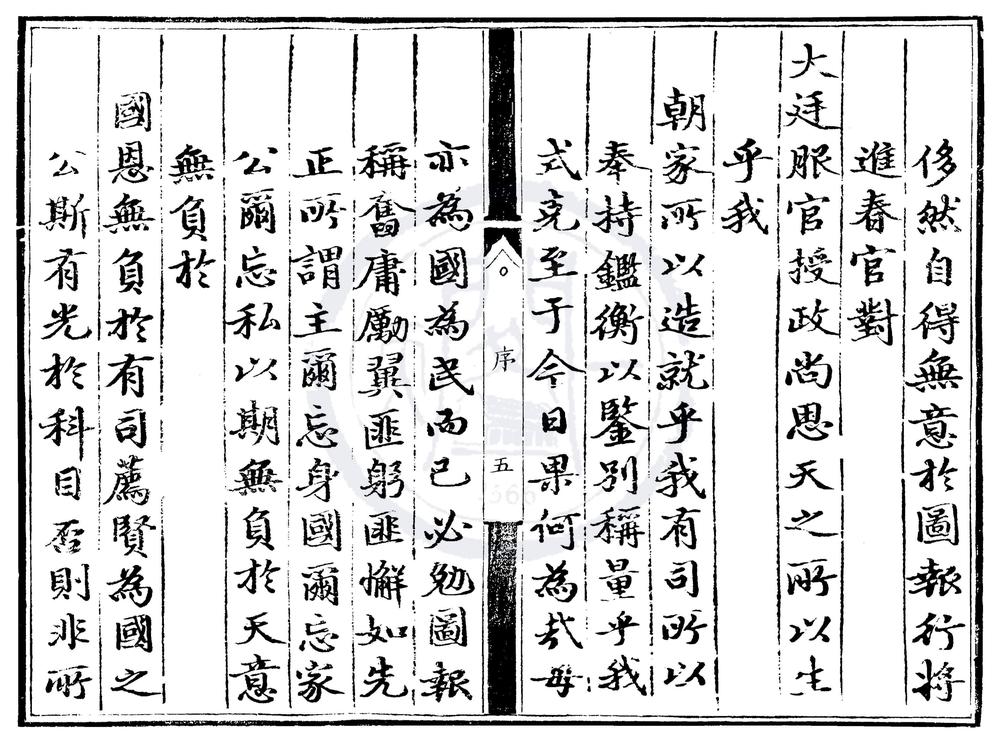 侈然自得無意於圖報行將
進春官對
大廷服官授政尚思天之所以生
乎我
朝家所以造就乎我有司所以
奉持鑑衡以鑒別稱量乎我
式克至于今日果何為哉毋
序
五
亦為國為民而已必勉圖報
稱奮庸勵翼匪躬匪懈如先
正所謂主爾忘身國爾忘家
公爾忘私以期無負於天意
無負於
國恩無負於有司薦賢為國之
公斯有光於科目否則非所